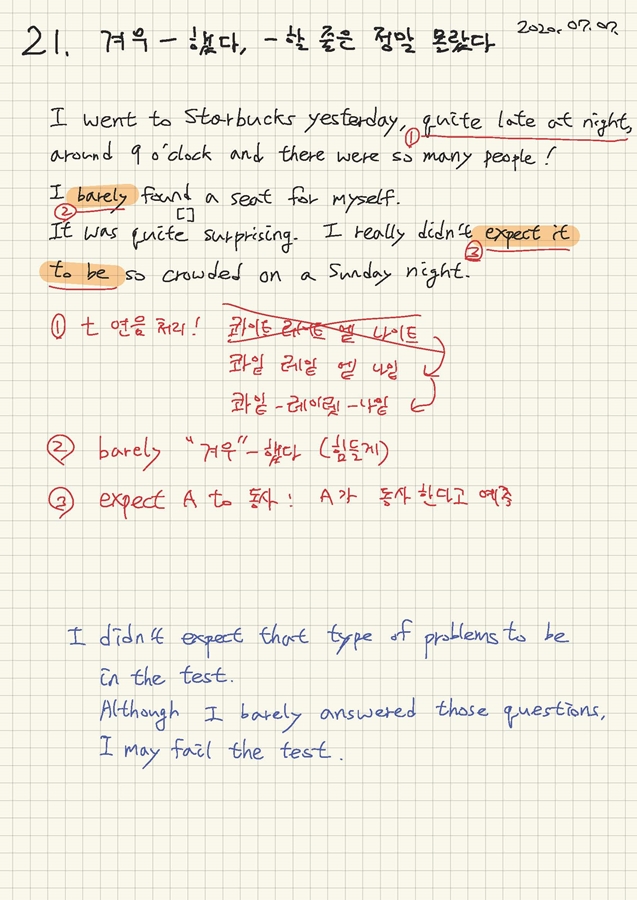 21. 겨우 - 했다, -할 줄은 정말 몰랐다 2020.07.07.
I went to Starbucks yesterday, quite late at night,
①
around 9 o'clock and there were so many people!
I barely found a seat for myself.
② []
It was quite surprising. I really didn't expect it
③
to be so crowded on a Sunday night.
① t 연음 처리! 콰이트 레이트 엩 나이트
콰잍 레잍 엩 나잍
콰잍 - 레이렡 - 나잍
② barely "겨우" - 했다 (힘들게)
③ expect A to 동사 : A가 동사 한다고 예측
I didn't expect that type of problems to be
in the test.
Although I barely answered those questions,
I may fail the test.